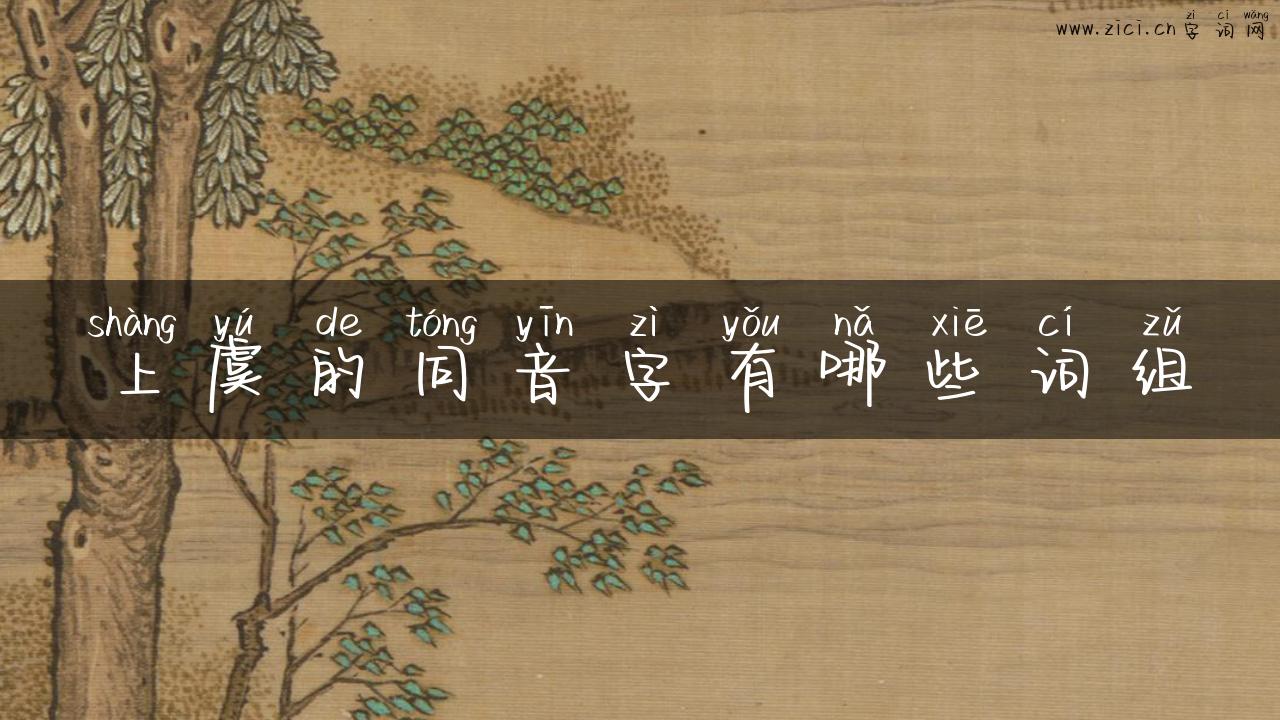 zì cí wǎng
www.zici.cn字词网
shàng yú de tóng yīn zì yǒu nǎ xiē cí zǔ
上虞的同音字有哪些词组